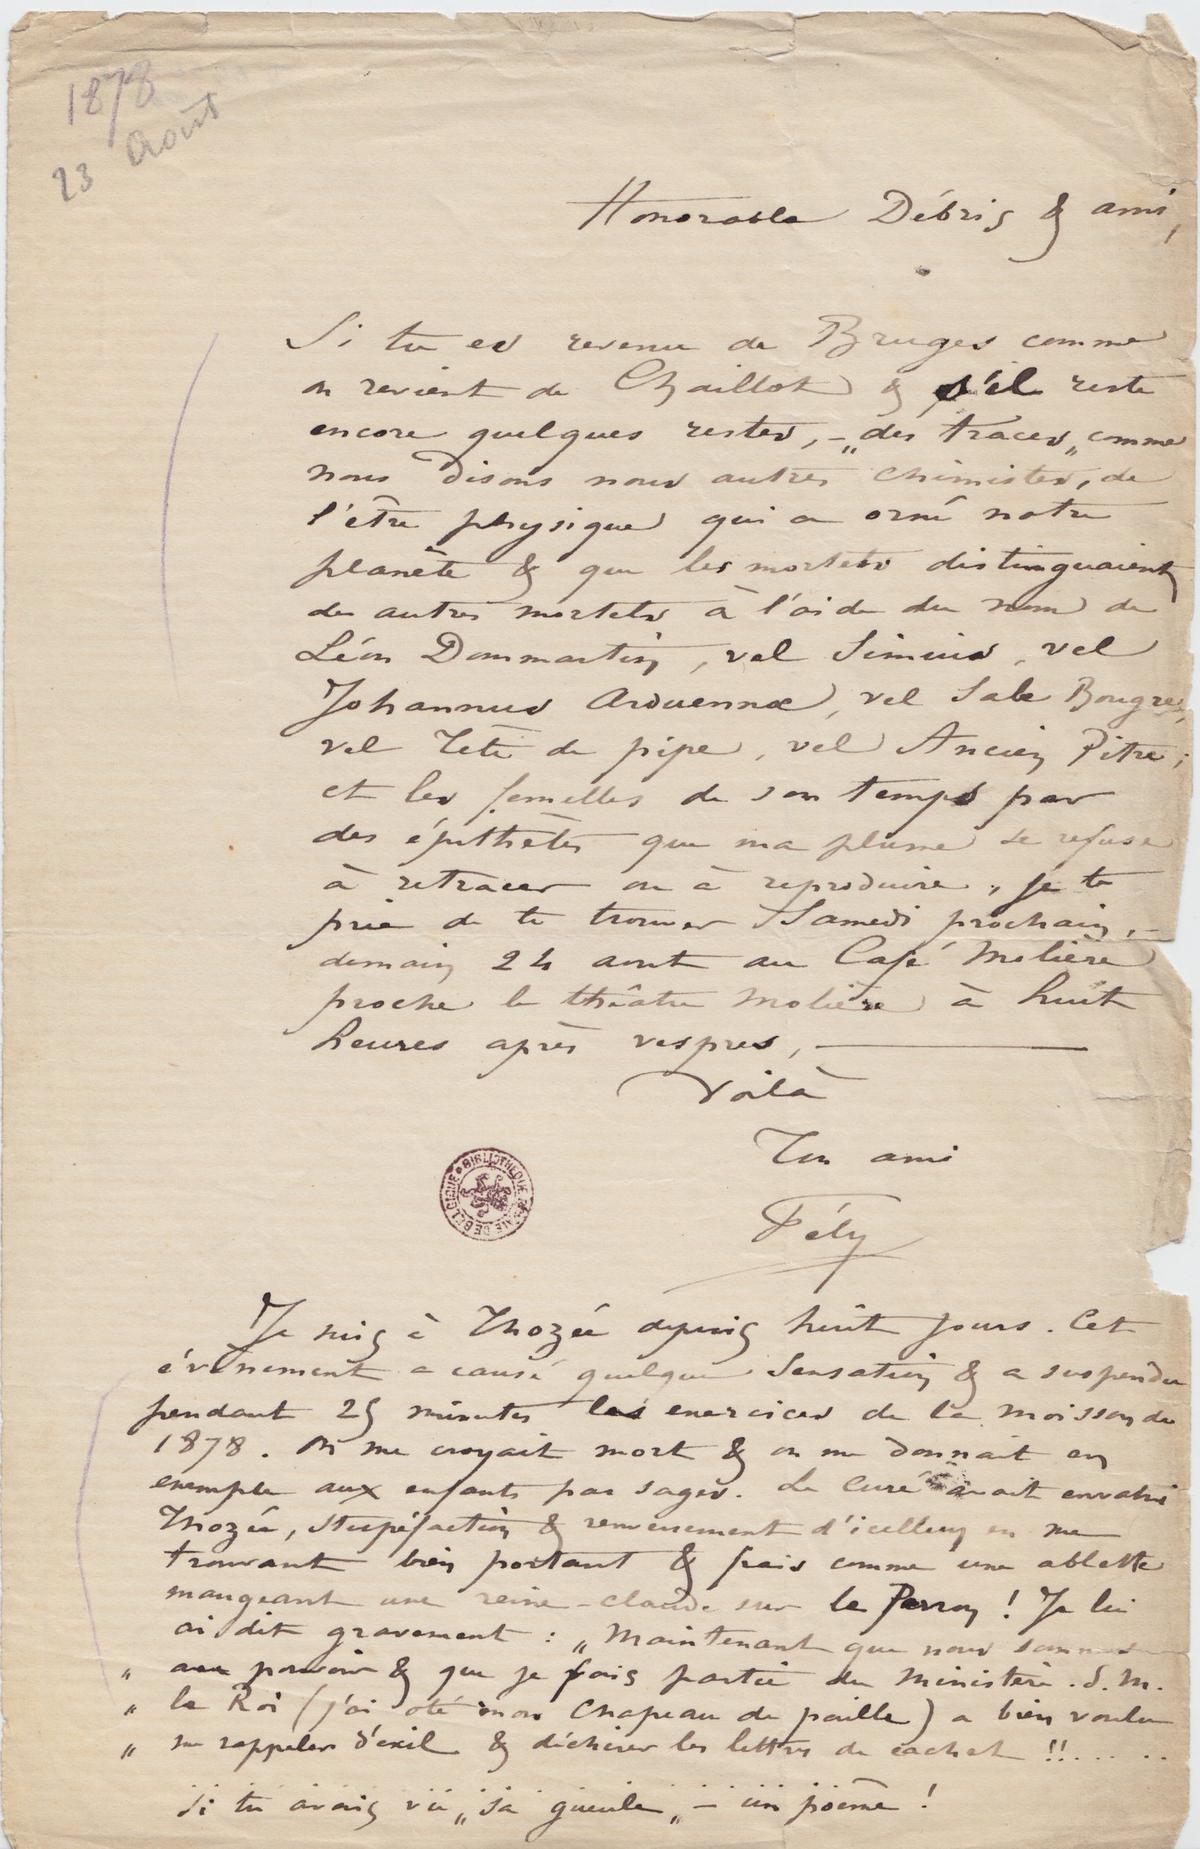 1878
23 Août
Honorable Débris & ami,
Si tu es revenu de Bruges comme
on revient de Chaillot & s'il reste
encore quelques restes, – „des traces„ comme
nous disons nous autres chimistes, de
l'être physique qui a orné notre
planète & que les mortels distinguaient
des autres mortels à l'aide du nom de
Léon Dommartin, vel Simius, vel
Johannus Arduennae, vel Sale Bougre,
vel Tête de pipe, vel Ancien Pitre;
et les femelles de son temps par
des épithètes que ma plume se refuse
à retracer ou à reproduire, je te
prie de te trouver Samedi prochain, –
demain 24 aout au Café Molière
proche le théâtre Molière à huit
heures après vespres, —
Voilà
Ton ami
Fély
BIBLIOTHÈQUE ROYALE DE BELGIQUE
Je suis à Thozée depuis huit jours. Cet
évènement a causé quelque Sensation & a suspendu
pendant 25 minutes les exercices de la moisson de
1878. On me croyait mort & on me donnait en
exemple aux enfants pas sages. Le Curé avait envahi
Thozée, stupéfaction & renversement d'icelluy en me
trouvant bien portant & frais comme une ablette
mangeant une reine-claude sur le Perron ! Je lui
ai dit gravement : „Maintenant que nous sommes
„ au pouvoir & que je fais partie du Ministère. S. M.
„ le Roi (j'ai oté mon chapeau de paille) a bien voulu
„ me rappeler d'exil & déchirer les lettres de cachet !!.... ..
Si tu avais vu „sa gueule„ – un poème !